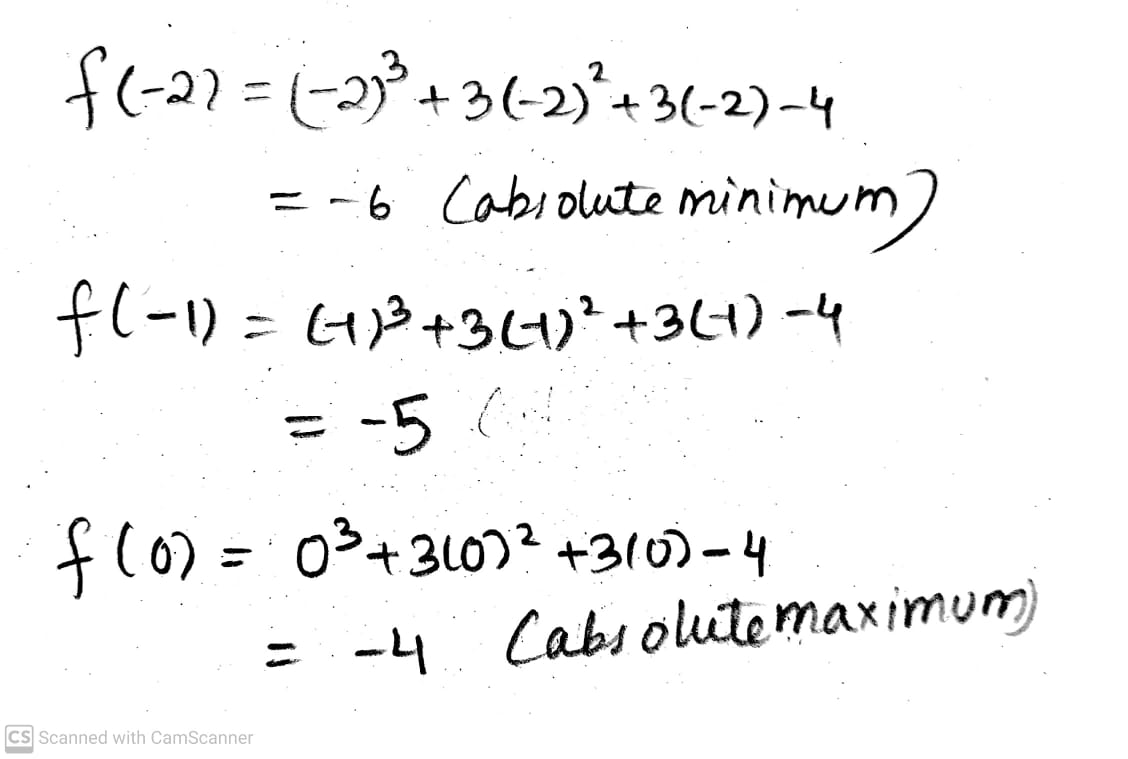 f(-2) = (-2)³ + 3(-2)² + 3(-2) - 4
= -6 (absolute minimum)
f(-1) = (-1)³ + 3(-1)² + 3(-1) - 4
= -5 (
f(0) = 0³ + 3(0)² + 3(0) - 4
= -4 (absolute maximum)
CS Scanned with CamScanner